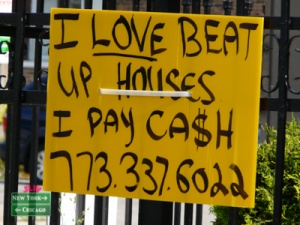 I LOVE BEAT
UP HOUSES
I PAY CA$H
773.337.6022
NEW YORK→
←CHICAGO